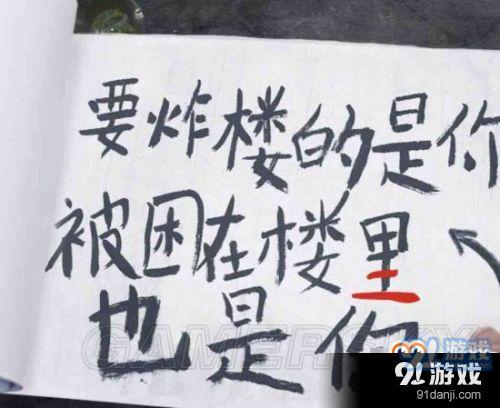 要炸楼的是你
被困在楼里
也是你
91游戏
91danji.com